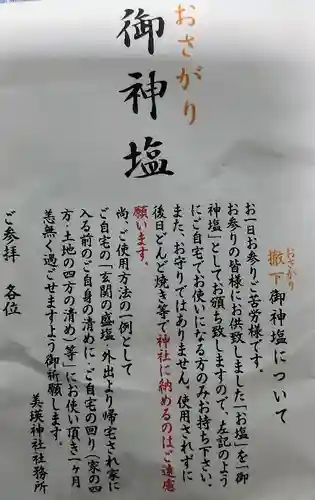 おさがり
御神塩
おさがり
撤下御神塩について
お一日お参りご苦労様です。
お参りの皆様にお供致しました「お塩」を「御
神塩」としてお頒ち致しますので、左記のよう
にご自宅でお使いになる方のみお持ち下さい、
また、お守りではありません。使用されずに
後日どんど焼き等で神社に納めるのはご遠慮
願います。
尚、ご使用方法の一例として
ご自宅の「玄関の盛塩、外出より帰宅され家に
入る前のご自身の清めに、ご自宅の回り(家の四
方・土地の四方の清め)等」にお使い頂き一ヶ月
恙無く過ごせますよう御祈願します。
美瑛神社社務所
ご参拝 各位